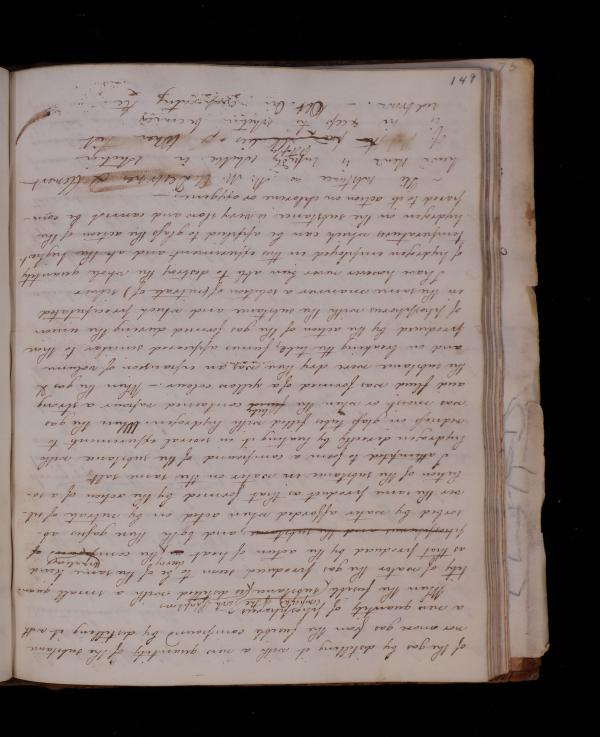 149
75
of the gas by distilling it with a new quantity of the substance
nor more gas from the fusible compound by distilling it with
a new quantity of phosphorus
When the fusible substance was distilled with a small quan-
tity of water the gas produced seem to be of the same kind
as that produced by the action of heat on the compound of
phosphorus and the substance, and both these gases ab-
sorbed by water afforded when acted on by nitrate of sil-
ver the same product as that formed by the action of a so-
lution of the substance in water on the same salt.
I attempted to form a compound of the substance with
hydrogen directly by heating it in several experiments to
redness in glass tubes filled with hydrogen When the gas
was moist or when the tube contained vapour a strong
acid fluid was formed of a yellow colour. — When the gas &
the substance were dry there was an expansion of volume
and on breaking the tube, fumes appeared similar to those
produced by the action of the gas formed during the union
of phosphorus with the substance and which precipitated
in the same manner a solution of (nitrate of) silver
I have however never been able to destroy the whole quantity
of hydrogen employed in this experiment and at the highest
temperature which can be applied to glass the action of the
hydrogen on the substance is very slow and cannot be com-
pared to its action on chlorine or oxygene. —
substance as M.